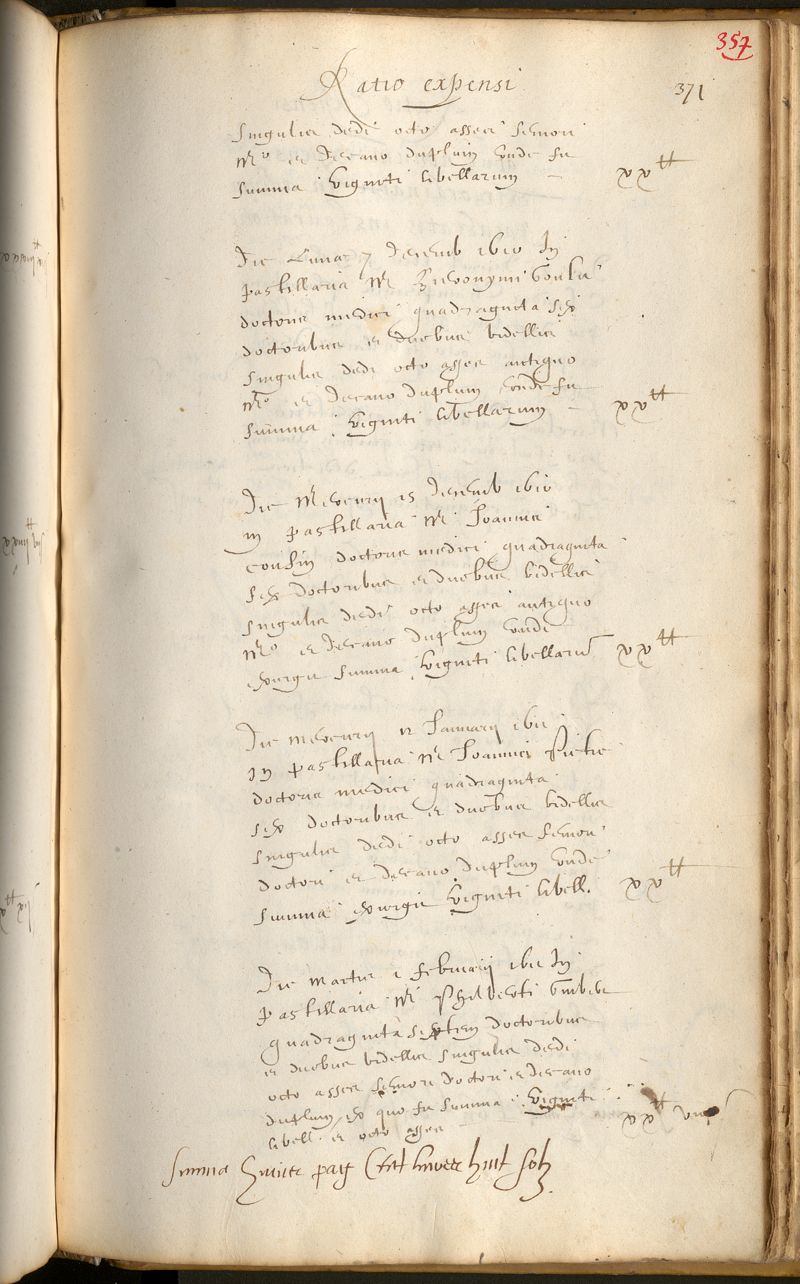 357
Ratio expensi
371
singulis dedi octo asses seniori
Mro et Decano duplum unde fit
summa viginti libellarum xx tt
Die Lunae 7 Decemb 1610 In
pastillaria Mri Hieronymi
doctoris medici quadraginta sex
doctoribus et duobus bidellis
singulis dedi octo asses antiquo
Mro et Decano duplum unde fit
summa viginti libellarum xx tt
Die Mercurij 15 Decemb 1610
in pastillaria Mri Joannis
doctoris medici quadraginta
sex doctoribus et duobus bidellis
singulis dedi octo asses antiquo
Mro et Decano duplum unde
exurgit summa viginti libellarum xx tt
Die Mercurij 12 Januarij 1611
in pastillaria Mri Joannis
doctoris medici quadraginta
sex doctoribus et duobus bidellis
singulis dedi octo asses seniori
doctori et decano duplum unde
summa exurgit viginti libell. xx tt
Die Martis 1 Februarij 1611 In
pastillaria Mri Philberti
quadraginta septem doctoribus
et duobus bidellis singulis dedi
octo asses seniori doctori et decano
duplum ex quo fit summa viginti
libell. et octo asses xx tt viij s
Summa huius pag Cent livres huit solz